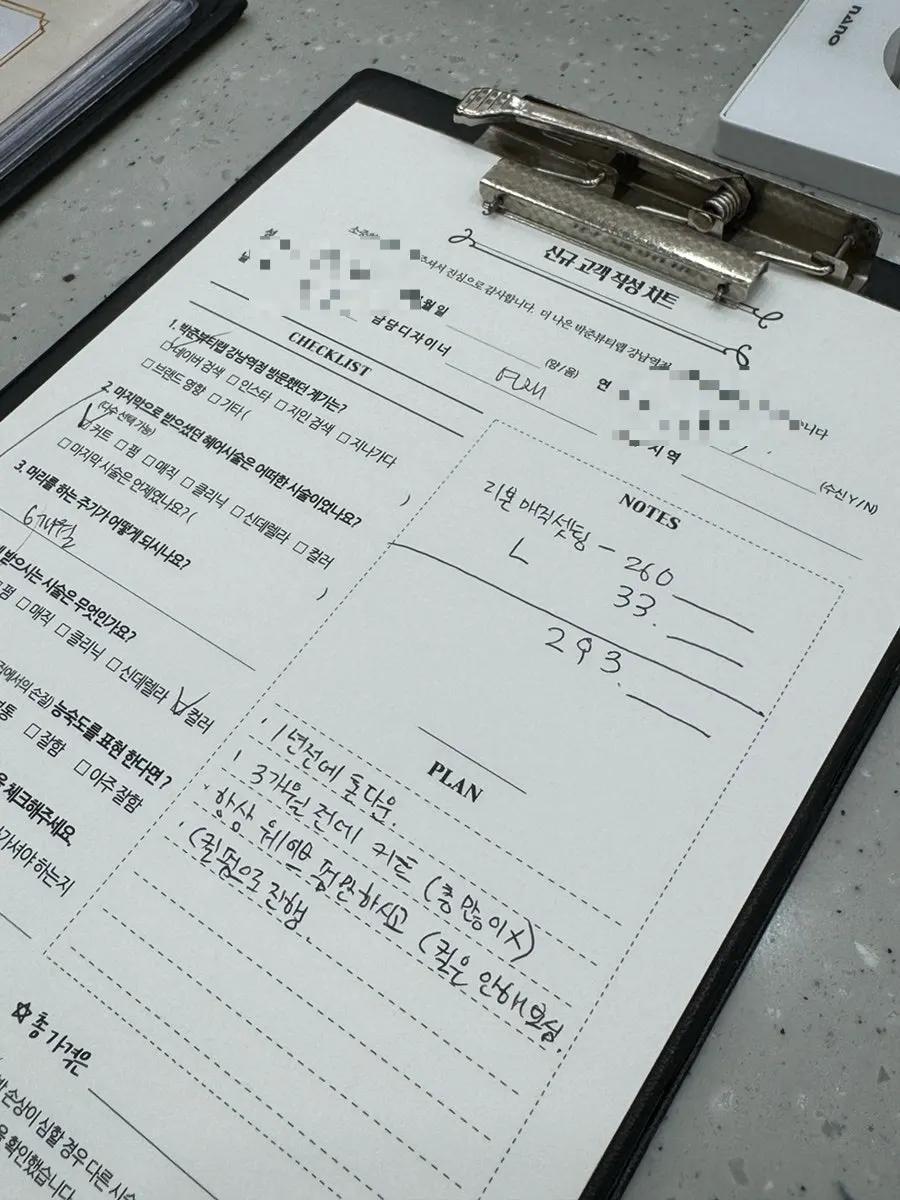 nano
신규 고객 작성 차트
주셔서 진심으로 감사합니다. 더 나은 박준뷰티랩 강남역점
니다
월 일
(양/음)
연
담당디자이너
지역
(수신 Y / N)
CHECKLIST
1. 박준뷰티랩 강남역점 방문했던 계기는?
☑네이버 검색 □인스타 □지인 검색 □지나가다
□브랜드 영향 □기타( )
2. 마지막으로 받으셨던 헤어시술은 어떠한 시술이었나요?
(다수 선택 가능)
☑커트 □펌 □매직 □클리닉 □신데렐라 □컬러
□마지막 시술은 언제였나요?( )
3. 머리를 하는 주기가 어떻게 되시나요?
6개월
받으시는 시술은 무엇인가요?
펌 □매직 □클리닉 □신데렐라 ☑컬러
집에서의 손질) 능숙도를 표현 한다면?
보통 □잘함 □아주 잘함
체크해주세요.
가셔야 하는지
☆총 가격은
손상이 심할 경우 다른 시술
을 확인했습니다.
NOTES
리본 매직셋팅 - 260
L 33.
293.
PLAN
· 1년전에 톤다운.
· 3개월 전에 커트 (층 많이X)
· 항상 웨이브 펌만하시고 (컬은 안해보심.
(컬펌으로 진행.